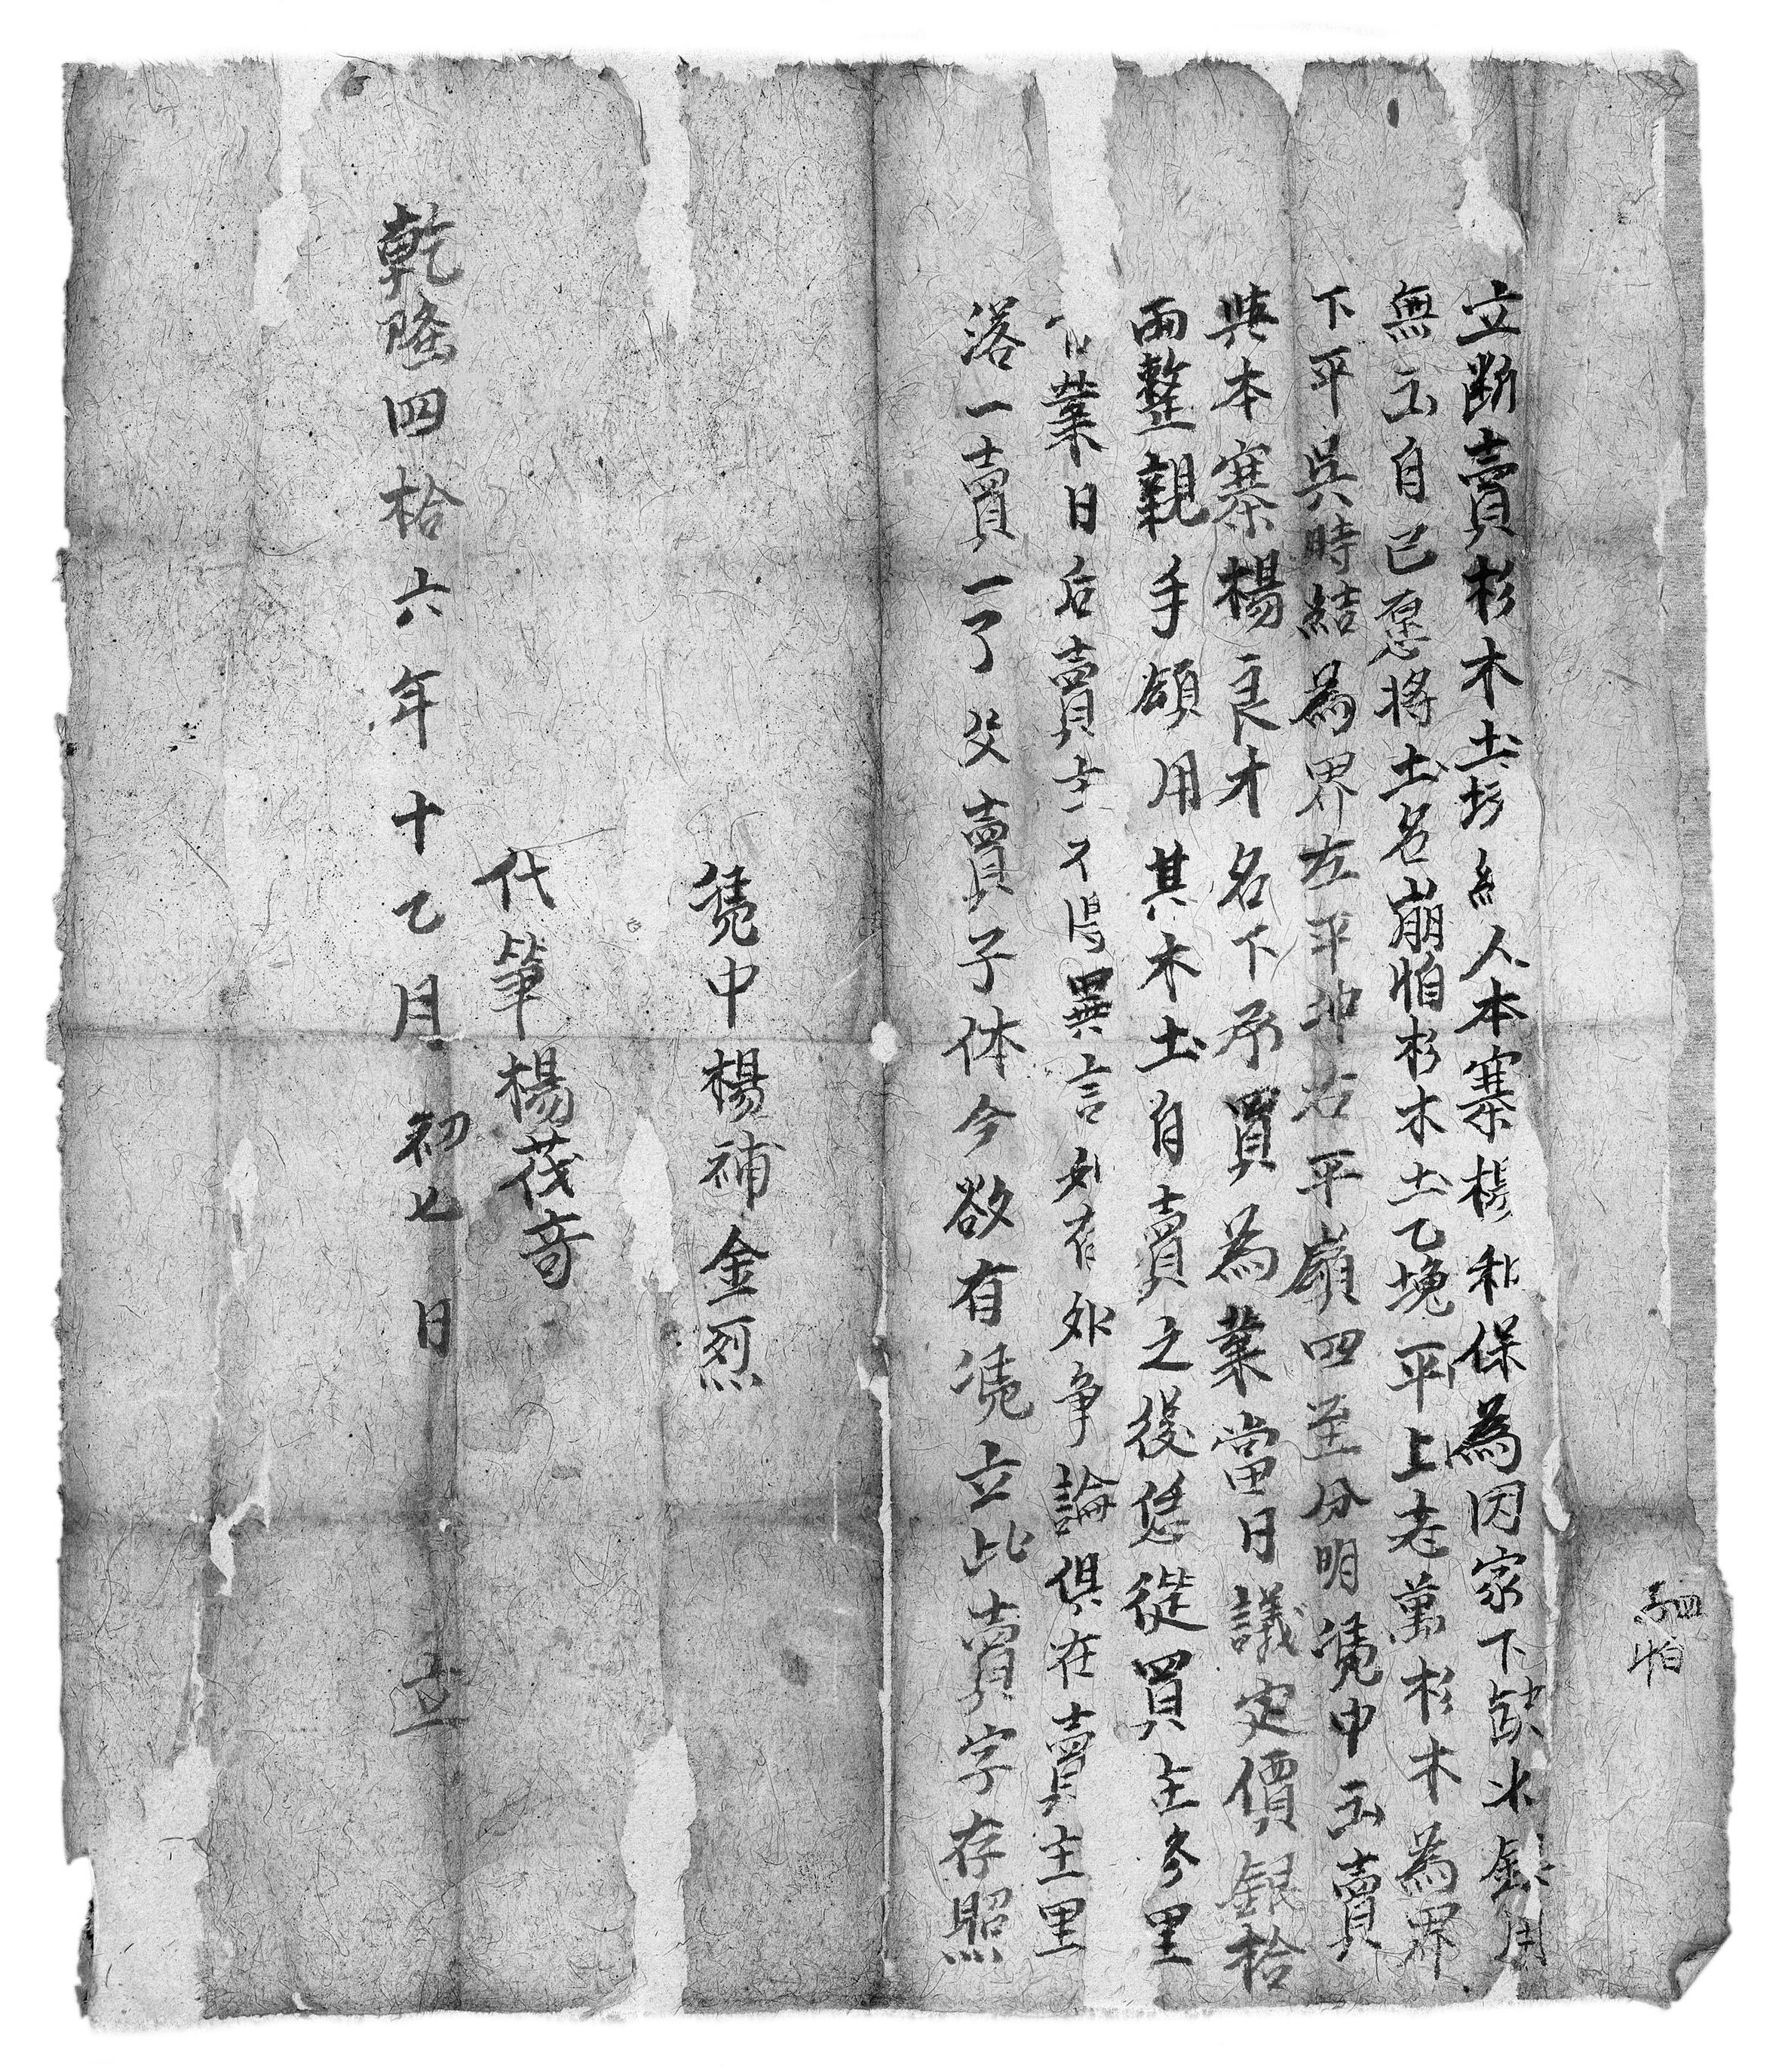 立断賣杉木土杉紅人本寨楊和保為因家下缺少銀用
無主自己愿將土名崩怕杉木土乙塊平上老萬杉木為界
下平吳時結為界左平冲右平嶺四至分明凴中玉賣
與本寨楊良才名下承買為業當日議定價銀拾
両整親手領用其木土自賣之後恁從買主参里
管業日后賣主不得異言如有外争論俱在賣主里
落一賣一了父賣子体今欲有凴立此賣字存照
凴中楊補金烈
代筆楊茂奇
乾隆四拾六年十乙月初七日立
怕